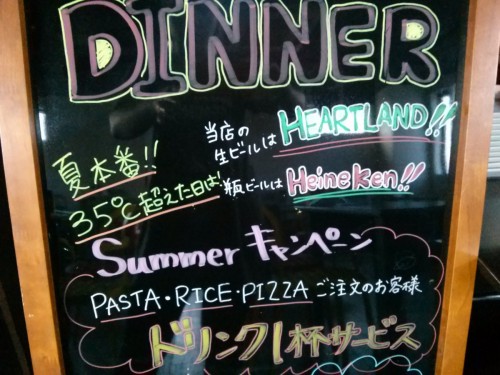 DINNER
当店の
生ビールは HEARTLAND!!
夏本番!!
35℃超えた日は!
瓶ビールは Heineken!!
Summer キャンペーン
PASTA・RICE・PIZZA ご注文のお客様
ドリンク1杯サービス